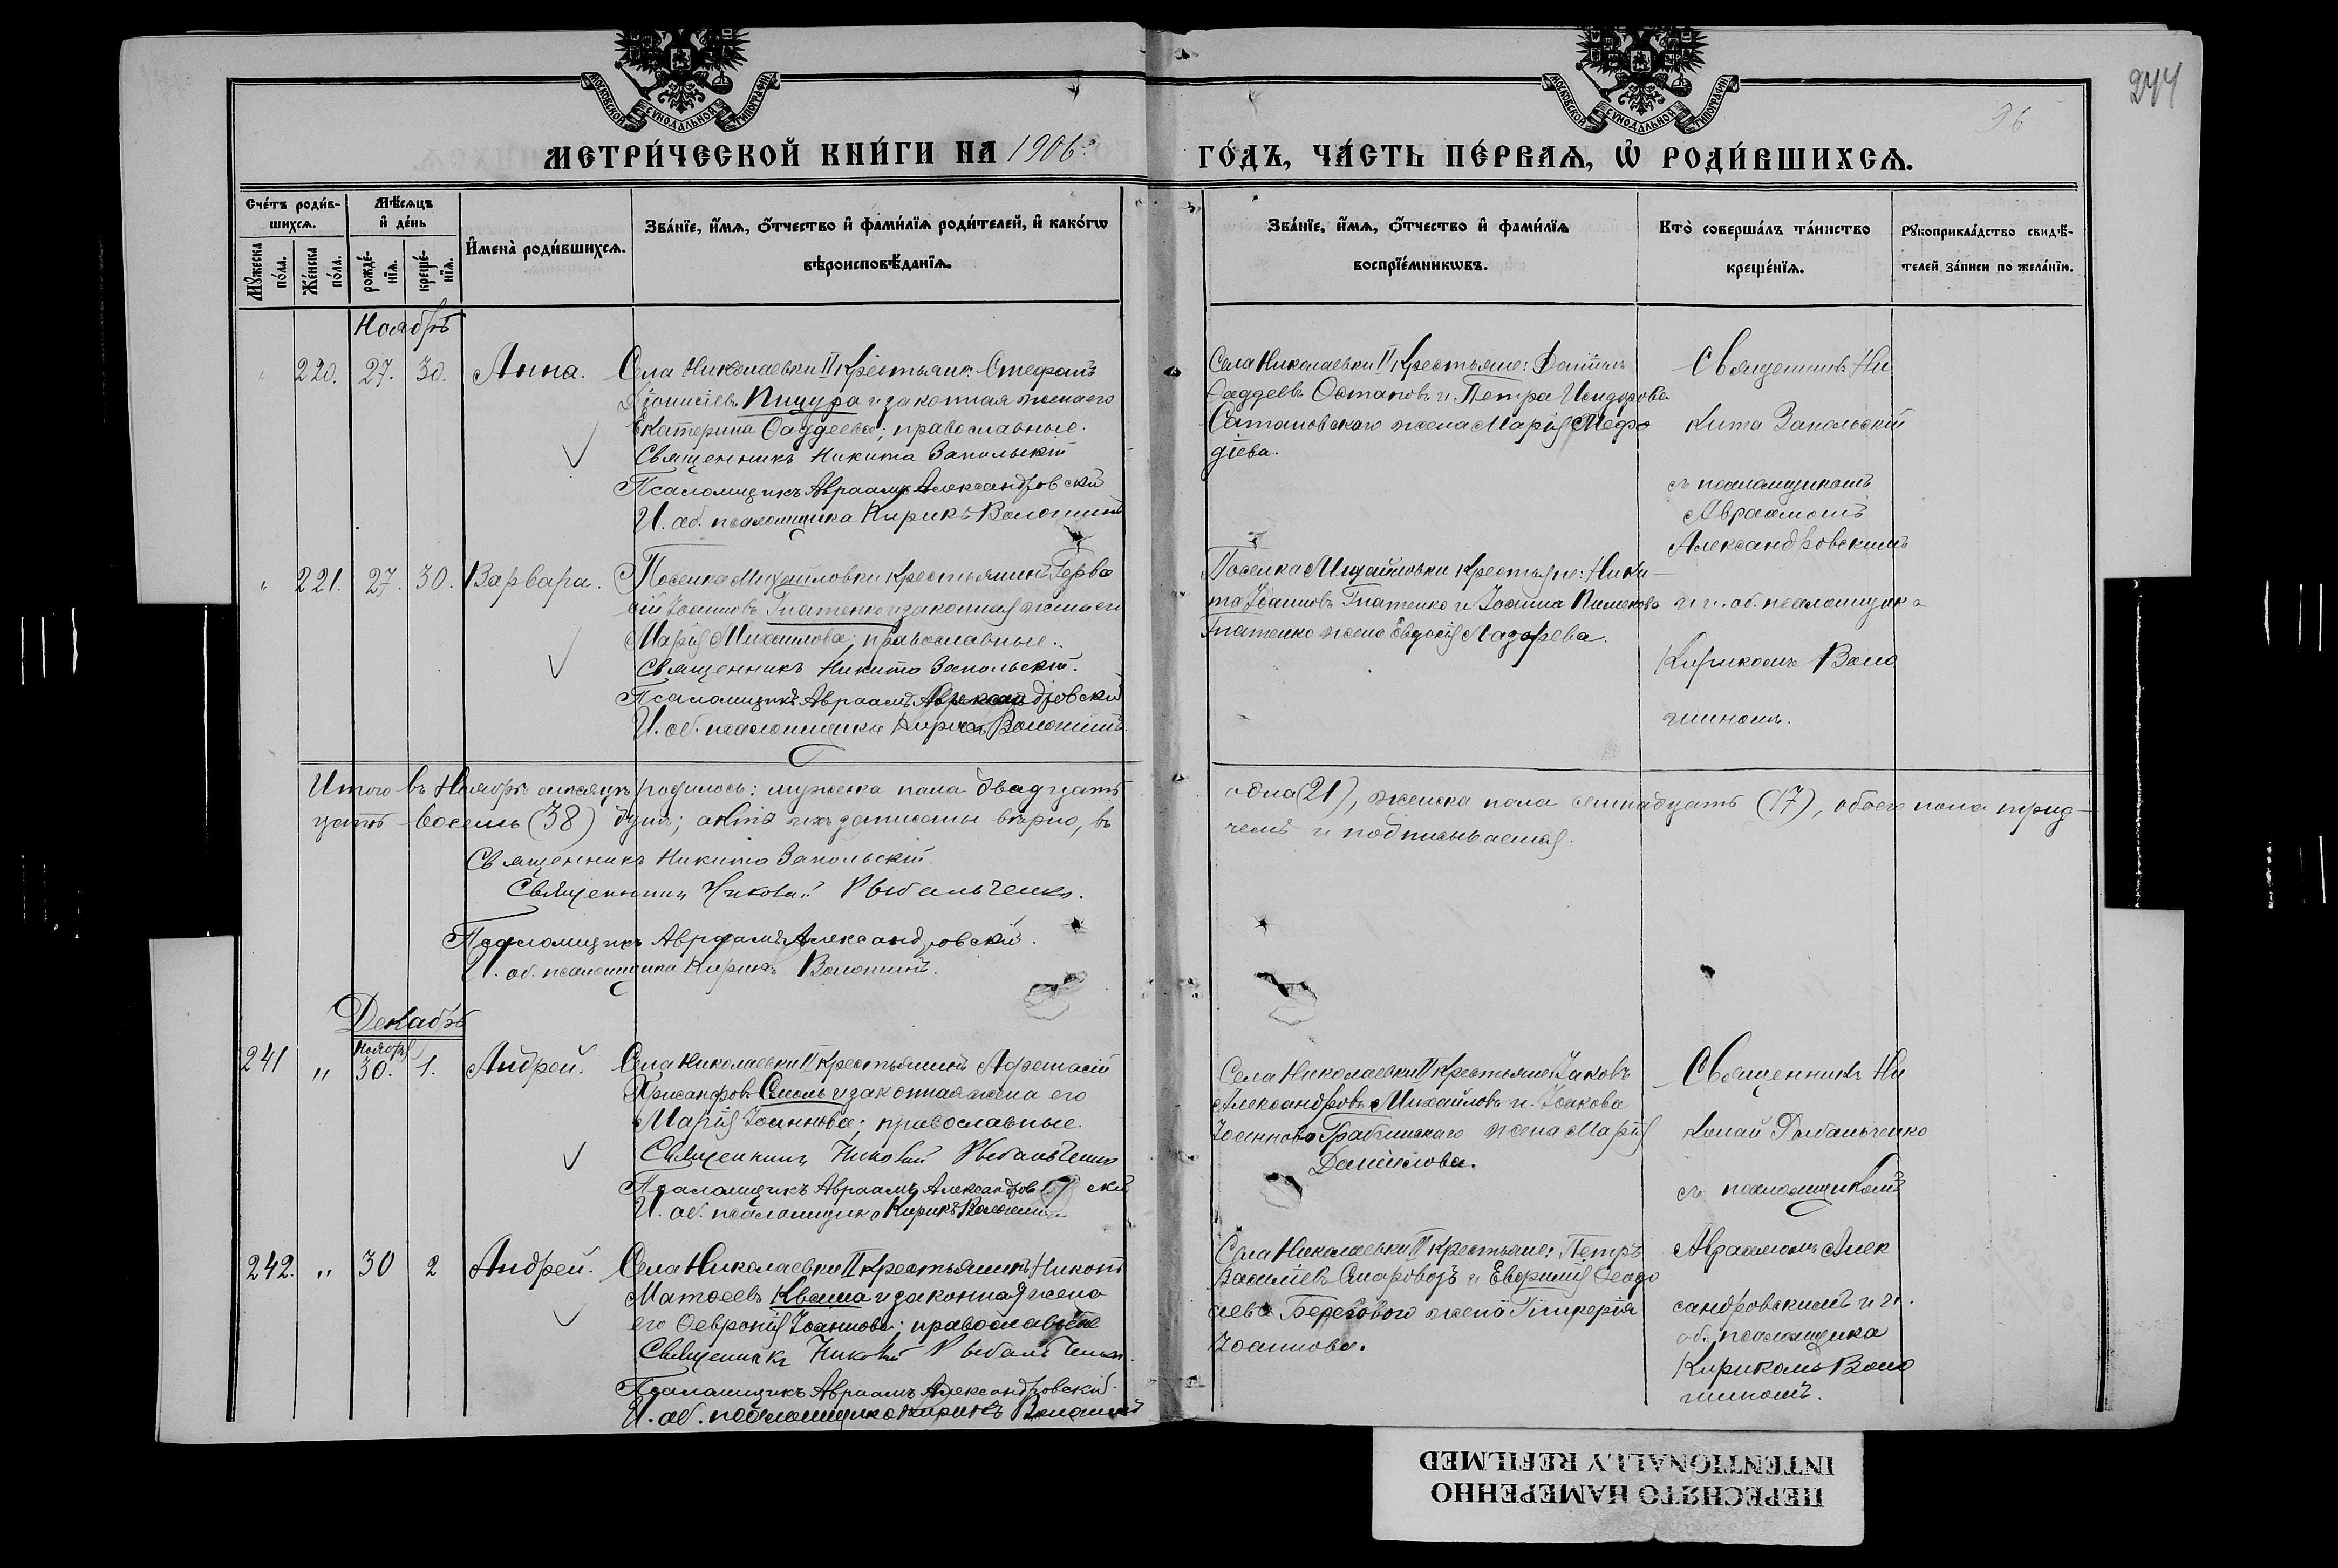 МОСКОВСКОЙ СУНОДАЛЬНОЙ ТИПОГРАФІИ
МОСКОВСКОЙ СУНОДАЛЬНОЙ ТИПОГРАФІИ
244
96
МЕТРИ́ЧЕСКОЙ КНИ́ГИ НА 1906
ГО́ДЪ, ЧА́СТЬ ПЕ́РВАѦ, Ѡ҆ РОДИ́ВШИХСѦ.
Сче́тъ роди́в-
шихсѧ.
Мꙋжеска
по́ла.
Же́нска
по́ла.
Мѣ́сѧцъ
и҆ де́нь
рожде́-
нїѧ.
креще́-
нїѧ.
И҆мена̀ роди́вшихсѧ.
Зва́нїе, и҆́мѧ, ѻ҆́тчество и҆ фами́лїѧ роди́телей, и҆ како́гѡ
вѣроисповѣ́данїѧ.
Зва́нїе, и҆́мѧ, ѻ҆́тчество и҆ фами́лїѧ
воспрїе́мникѡвъ.
Кто̀ соверша́лъ та́инство
креще́нїѧ.
Рꙋкоприкла́дство свидѣ́-
телей за́писи по жела́нїю.
Ноябрь
" 220. 27. 30. Анна.
Села Николаевки II крестьянинъ Стефанъ
Діонисіевъ Пицура и законная жена его
Екатерина Фаддеева; православные.
Священникъ Никита Запольскій
Псаломщикъ Авраамъ Александровскій
И. об. псаломщика Кирикъ Волошинъ
Села Николаевки II крестьяне: Даніилъ
Фаддеевъ Остаповъ и Петра Исидорова
жена Марія Мефо
діева.
Священникъ Ни
кита Запольскій
съ псаломщикомъ
Авраамомъ
Александровскимъ
" 221. 27. 30. Варвара.
Поселка Михайловки крестьянинъ Герва
сій Іоанновъ Гнатенко и законная жена его
Марія Михаилова; православные.
Священникъ Никита Запольскій.
Псаломщикъ Авраамъ Александровскій
И. об. псаломщика Кирикъ Волошинъ.
Поселка Михайловки крестьяне: Ники-
та Іоанновъ Гнатенко и Іоанна Пименова
Гнатенко жена Евдокія Лазарева.
и и. об. псаломщика
Кирикомъ Воло
шиномъ.
Итого въ Ноябрѣ мѣсяцѣ родилось: мужеска пола двадцать
одна (21), женска пола семнадцать (17), обоего пола трид-
цать восемь (38) душъ; акты ихъ записаны вѣрно, въ
чемъ и подписываемся:
Священникъ Никита Запольскій.
Священникъ Николай Рыбальченко.
Псаломщикъ Авраамъ Александровскій.
И. об. псаломщика Кирикъ Волошинъ.
Декабрь
Ноября
241 " 30. 1. Андрей.
Села Николаевки II крестьянинъ Афанасій
Хрисанфовъ и законная жена его
Марія Іоаннова; православные.
Священникъ Николай Рыбальченко
Псаломщикъ Авраамъ Александровскій
И. об. псаломщика Кирикъ Волошинъ
Села Николаевки II крестьяне: Іаковъ
Александровъ Михайловъ и Іакова
Іоаннова Грабчинскаго жена Марія
Даніилова.
Священникъ Ни
колай Рыбальченко
съ псаломщикомъ
242. " 30 2 Андрей.
Села Николаевки II крестьянинъ Никонъ
Матѳеевъ Кваша и законная жена
его Февронія Іоаннова; православные
Священникъ Николай Рыбальченко.
Псаломщикъ Авраамъ Александровскій.
И. об. псаломщика Кирикъ Волошинъ
Села Николаевки II крестьяне: Петръ
Василіевъ и Евфимія
Берегового жена Гликерія
Іоаннова.
Авраамомъ Алек
сандровскимъ и и.
об. псаломщика
Кирикомъ Воло
шиномъ.
ПЕРЕСНЯТО НАМЕРЕННО
INTENTIONALLY REFILMED